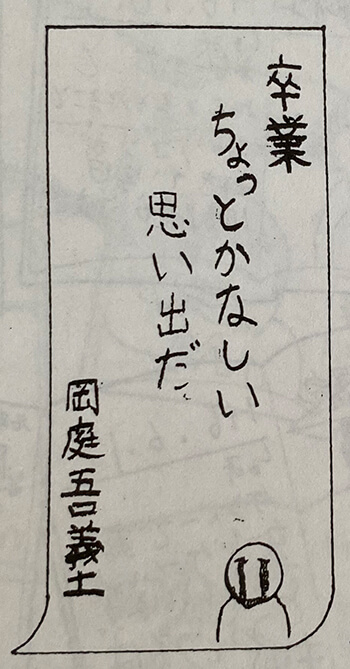 卒業
ちょっとかなしい
思い出だ
岡庭吾義土